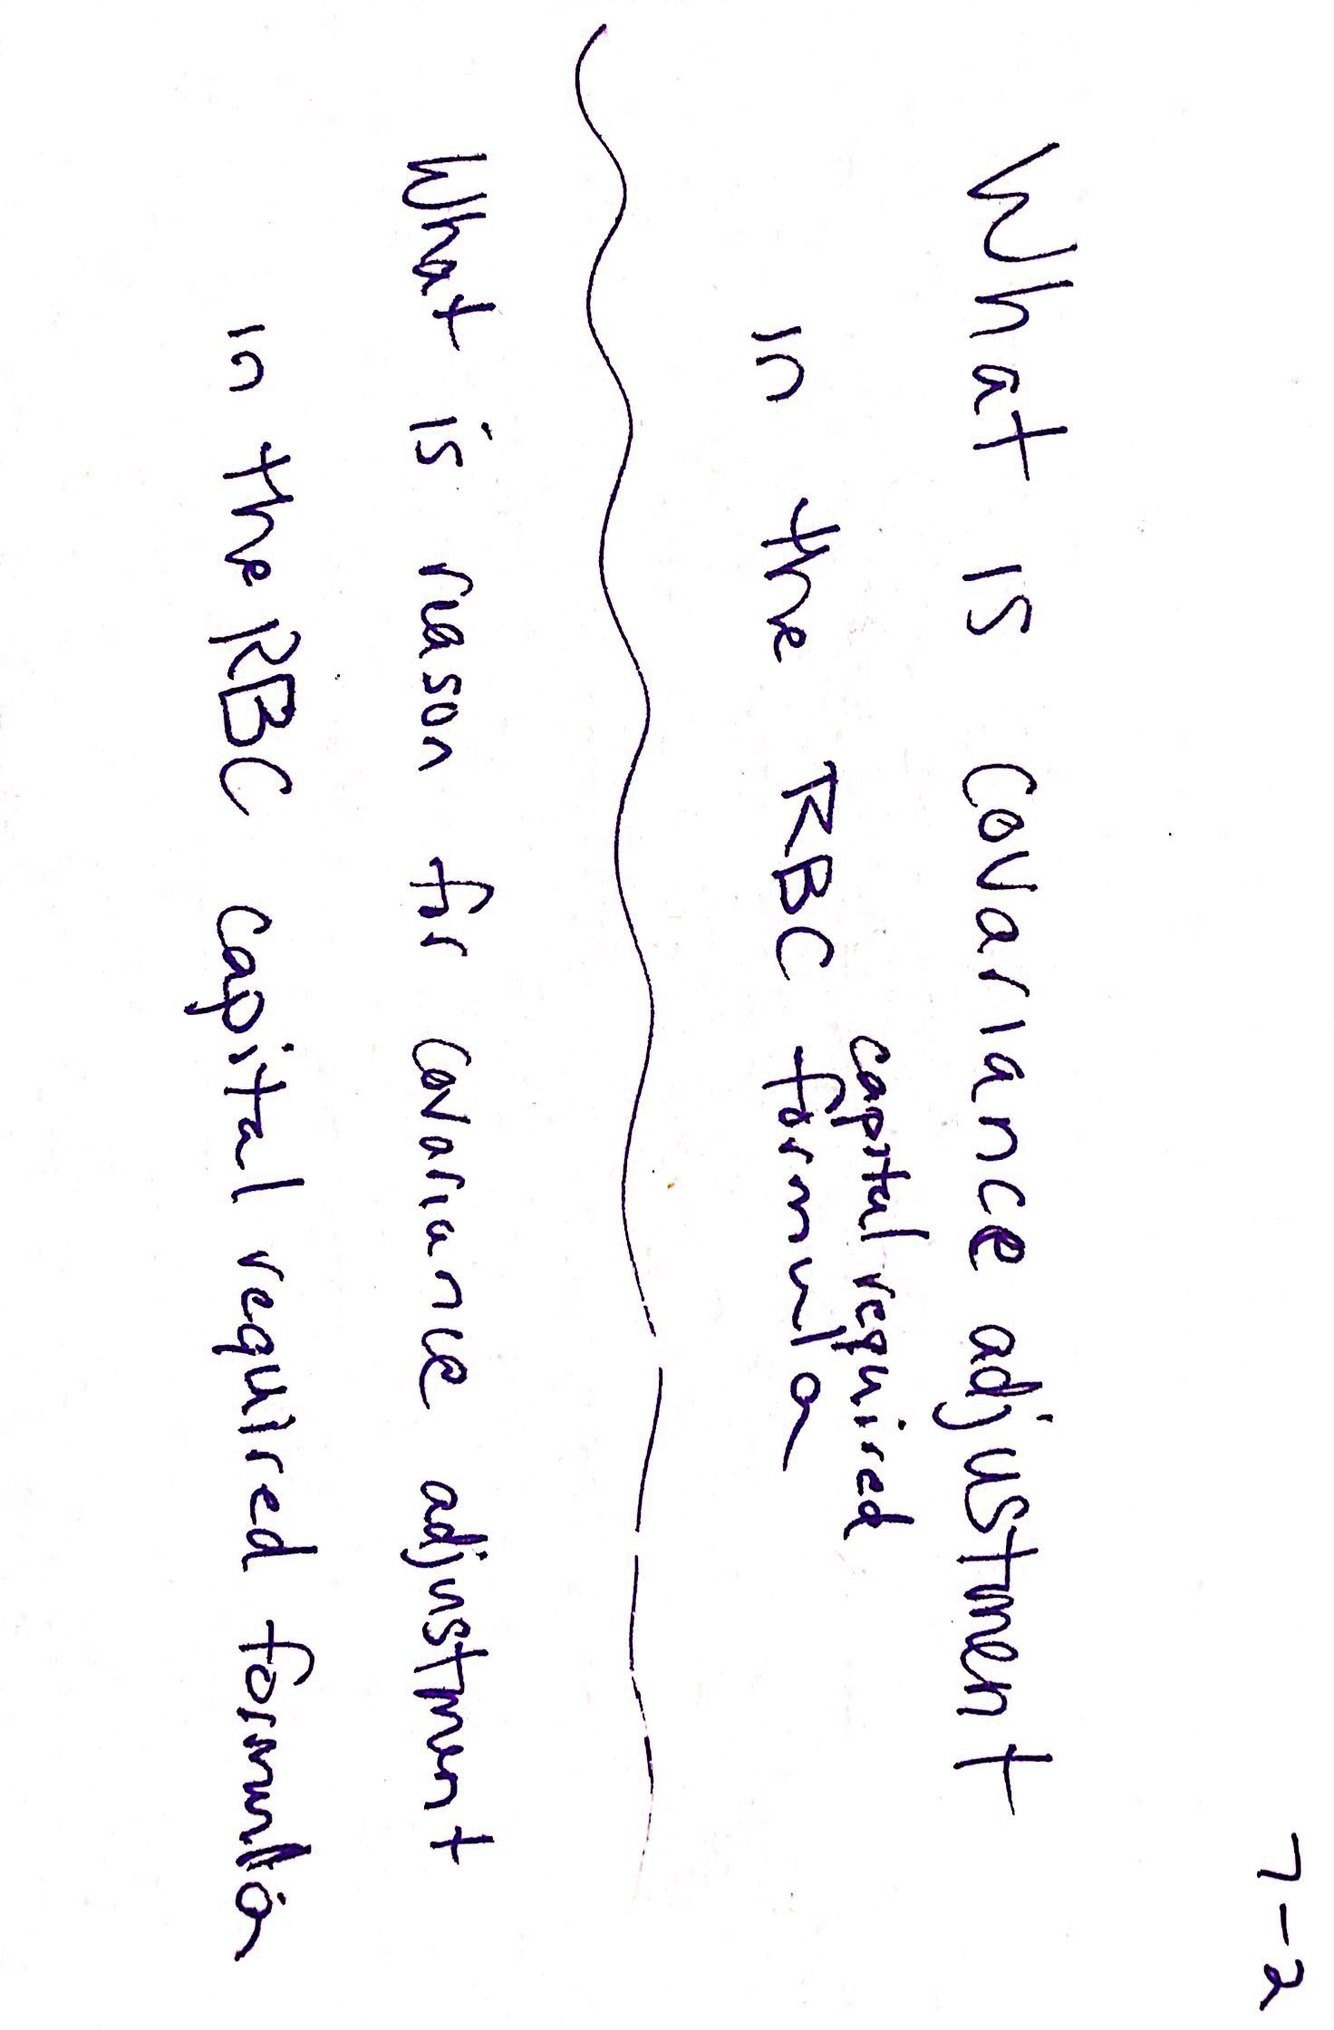 7-2
What is Covariance adjustment
capital required
in the RBC formula
What is reason for covariance adjustment
in the RBC capital required formula